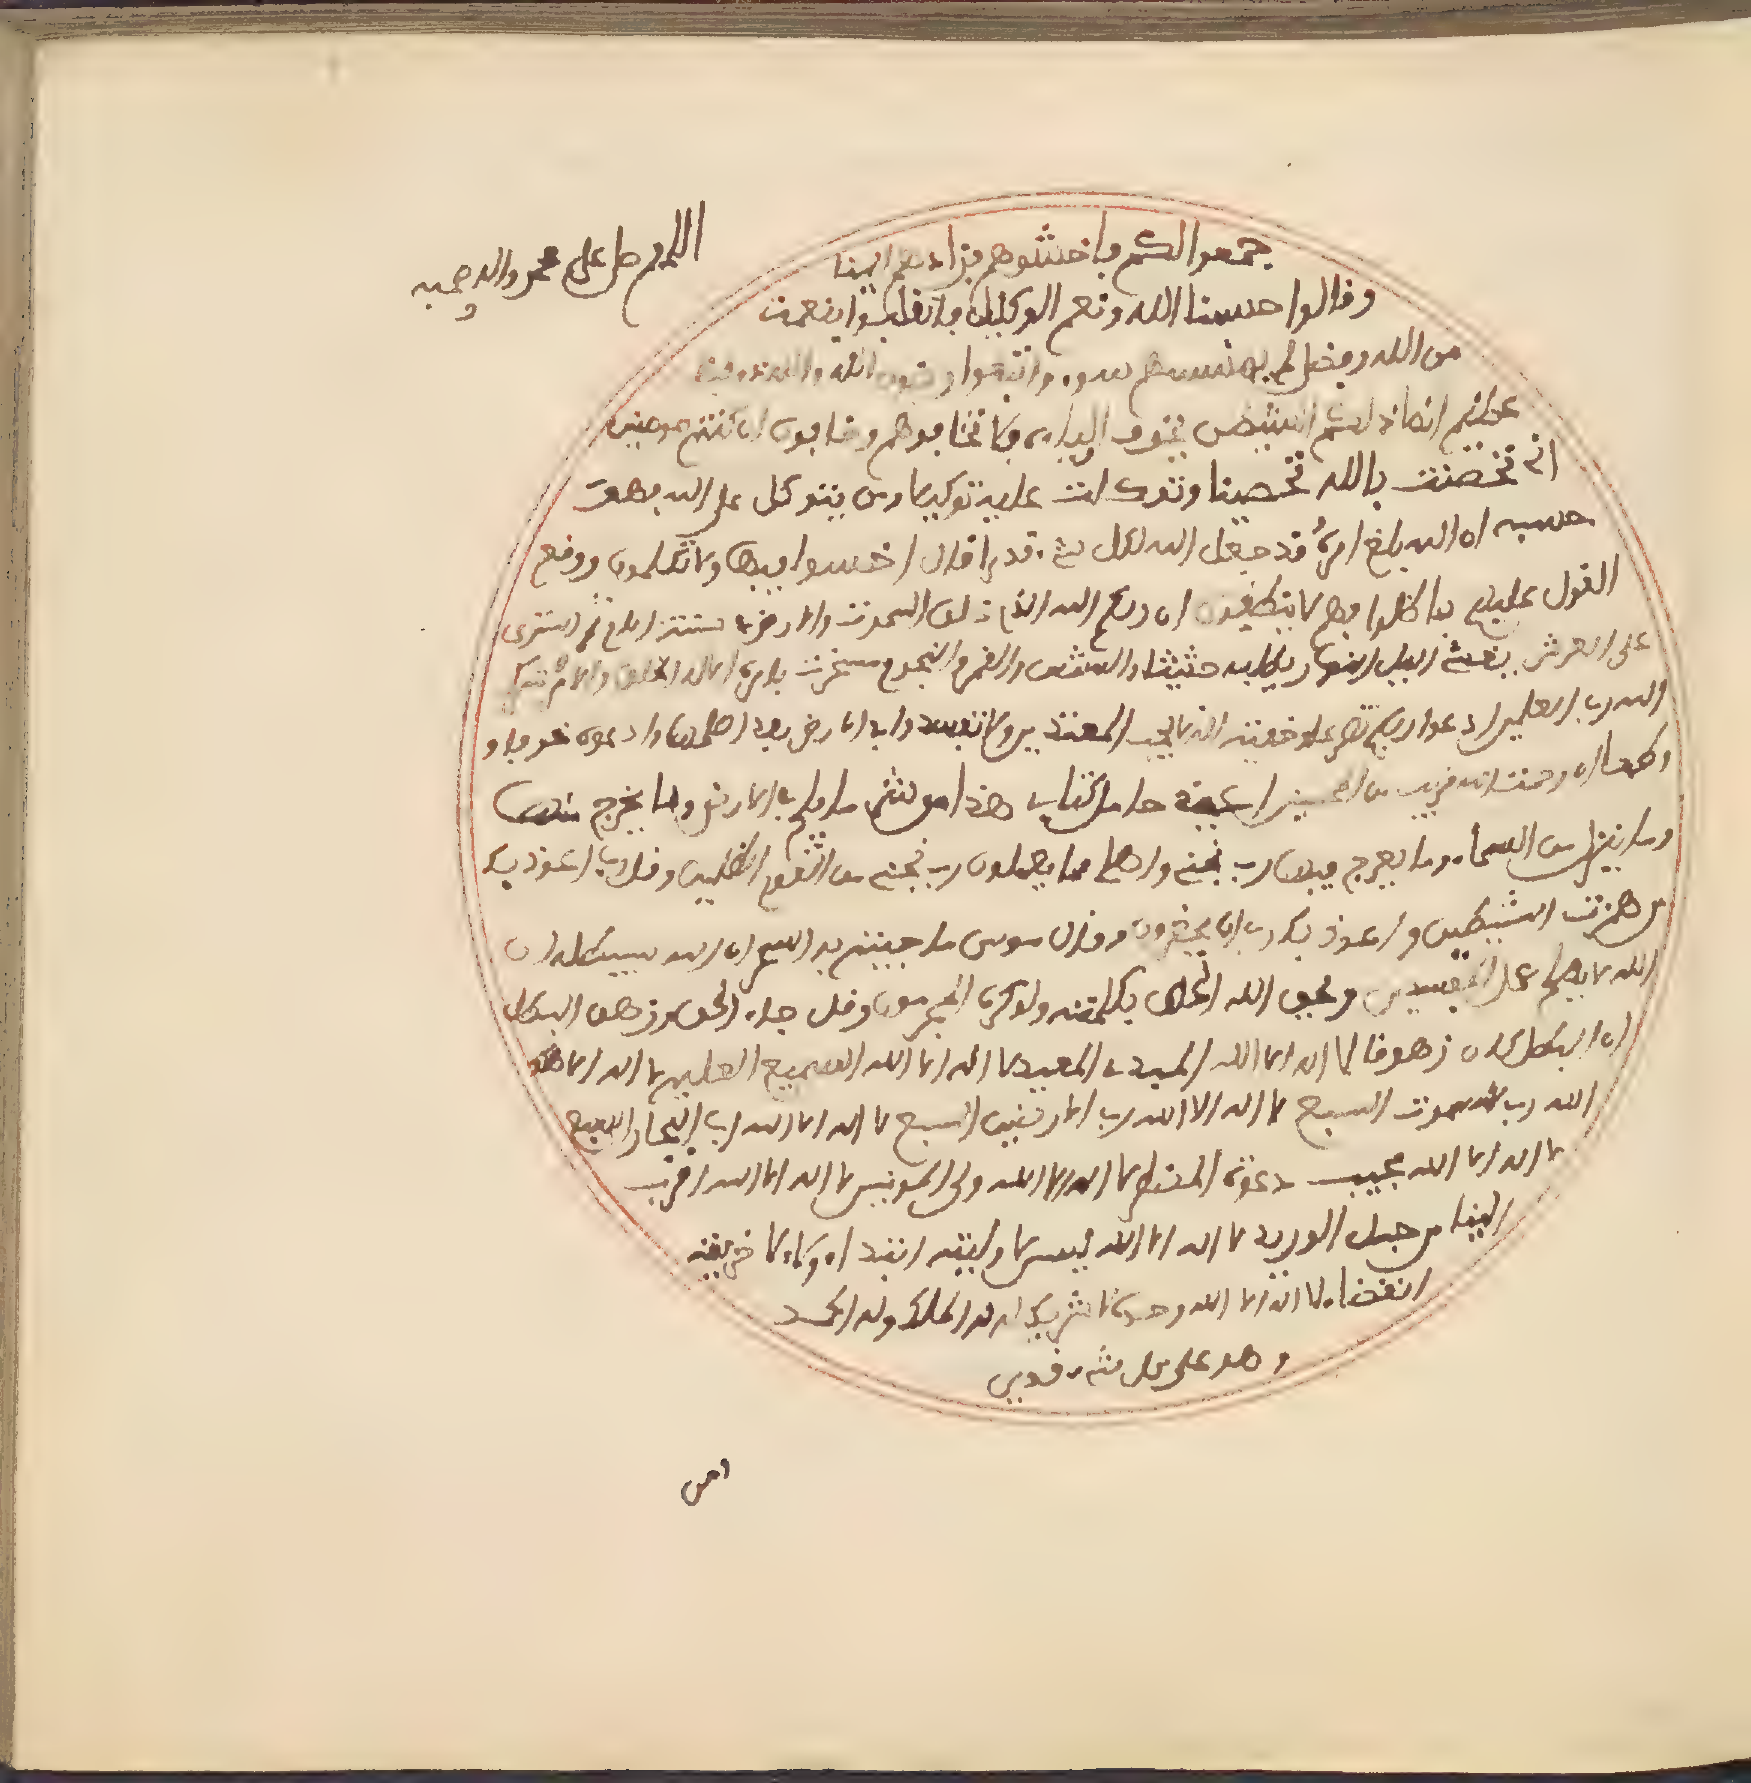 اللهم صل على محمد واله وصحبه
جمعوا لكم فاخشوهم فزادهم ايمنا
وقالوا حسبنا الله ونعم الوكيل فانقلبوا بنعمت
من الله وفضل لم يمسسهم سوء واتبعوا رضون الله والله ذو فضل
عظيم انما ذلكم الشيطن يخوف اولياءه فلا تخافوهم وخافون ان كنتم مومنين
اني تحصنت بالله تحصينا وتوكلت عليه توكيلا ومن يتوكل على الله فهو
حسبه ان الله بلغ امره قد جعل الله لكل شيء قدرا قال اخسوا فيها ولا تكلمون ووقع
القول عليهم بما ظلموا فهم لا ينطقون ان ربكم الله الذي خلق السموت والارض في ستة ايام ثم استوى
على العرش يغشي اليل النهار يطلبه حثيثا والشمس والقمر والنجوم مسخرت بامره الا له الخلق والامر تبرك
الله رب العلمين ادعوا ربكم تضرعا وخفية انه لا يحب المعتدين ولا تفسدوا في الارض بعد اصلحها وادعوه خوفا و
وطمعا ان رحمت الله قريب من المحسنين حامل كتاب هذا من شر ما يلج في الارض وما يخرج منها
وما ينزل من السماء وما يعرج فيها رب نجني واهلي مما يعملون رب نجني من القوم الظلمين وقل رب اعوذ بك
من همزت الشيطين واعوذ بك رب ان يحضرون وقال موسى ما جيتم به السحر ان الله سيبطله ان
الله لا يصلح عمل المفسدين ويحق الله الحق بكلمته ولو كره المجرمون وقل جاء الحق وزهق البطل
ان البطل كان زهوقا لا اله الا الله المبدء المعيد لا اله الا الله السميع العليم لا اله الا هو
الله رب السموت السبع لا اله الا الله رب الارضين السبع لا اله الا الله رب البحار السبع
لا اله الا الله مجيب دعوة المضطر لا اله الا الله ولي المومنين لا اله الا الله اقرب
الينا من حبل الوريد لا اله الا الله ليس لاوليته ابتداء ولا لاخريته
انقضاء لا اله الا الله وحده لا شريك له له الملك وله الحمد
وهو على كل شيء قدير
امين